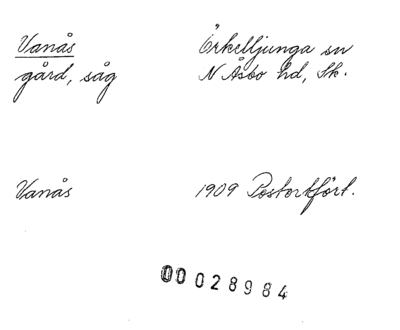 Vanås Örkelljunga sn
gård, såg N Åsbo hd, Sk.
Vanås 1909 Postortfört.
00028984